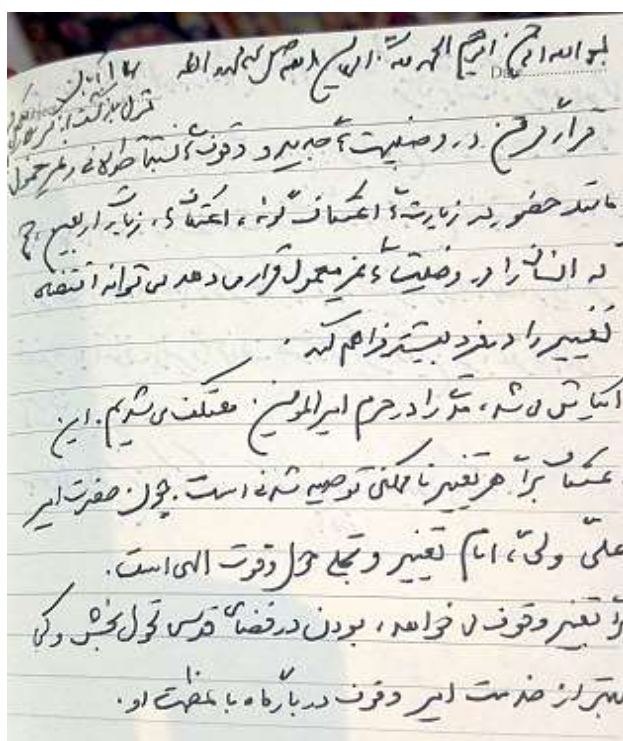 بسم الله الرحمن الرحیم الحمد لله رب العالمین اللهم صل علی محمد و آله ۱۴ آبان
Date
قرار گرفتن در وضعیت‌های جدید و وقوف‌های نسبتا طولانی و غیر معمول
مانند حضور در زیارت‌های اعتکاف گونه، اعتکاف‌ها، زیارت اربعین، حج
که انسان را در وضعیت‌های غیر معمول قرار می دهد می تواند اقتضای
تغییر را در فرد بیشتر فراهم کند.
ای کاش می شد، مدتی را در حرم امیرالمومنین معتکف می شدیم. این
اعتکاف برای هر تغییر ناممکنی توصیه شدنی است. چون حضرت امیر
علی ولی، امام تغییر و تجلی حول و قوت الهی است.
تغییر وقوف می خواهد، بودن در فضای قدسی تحول بخش و کی
بهتر از خدمت امیر وقوف در بارگاه با عظمت او.